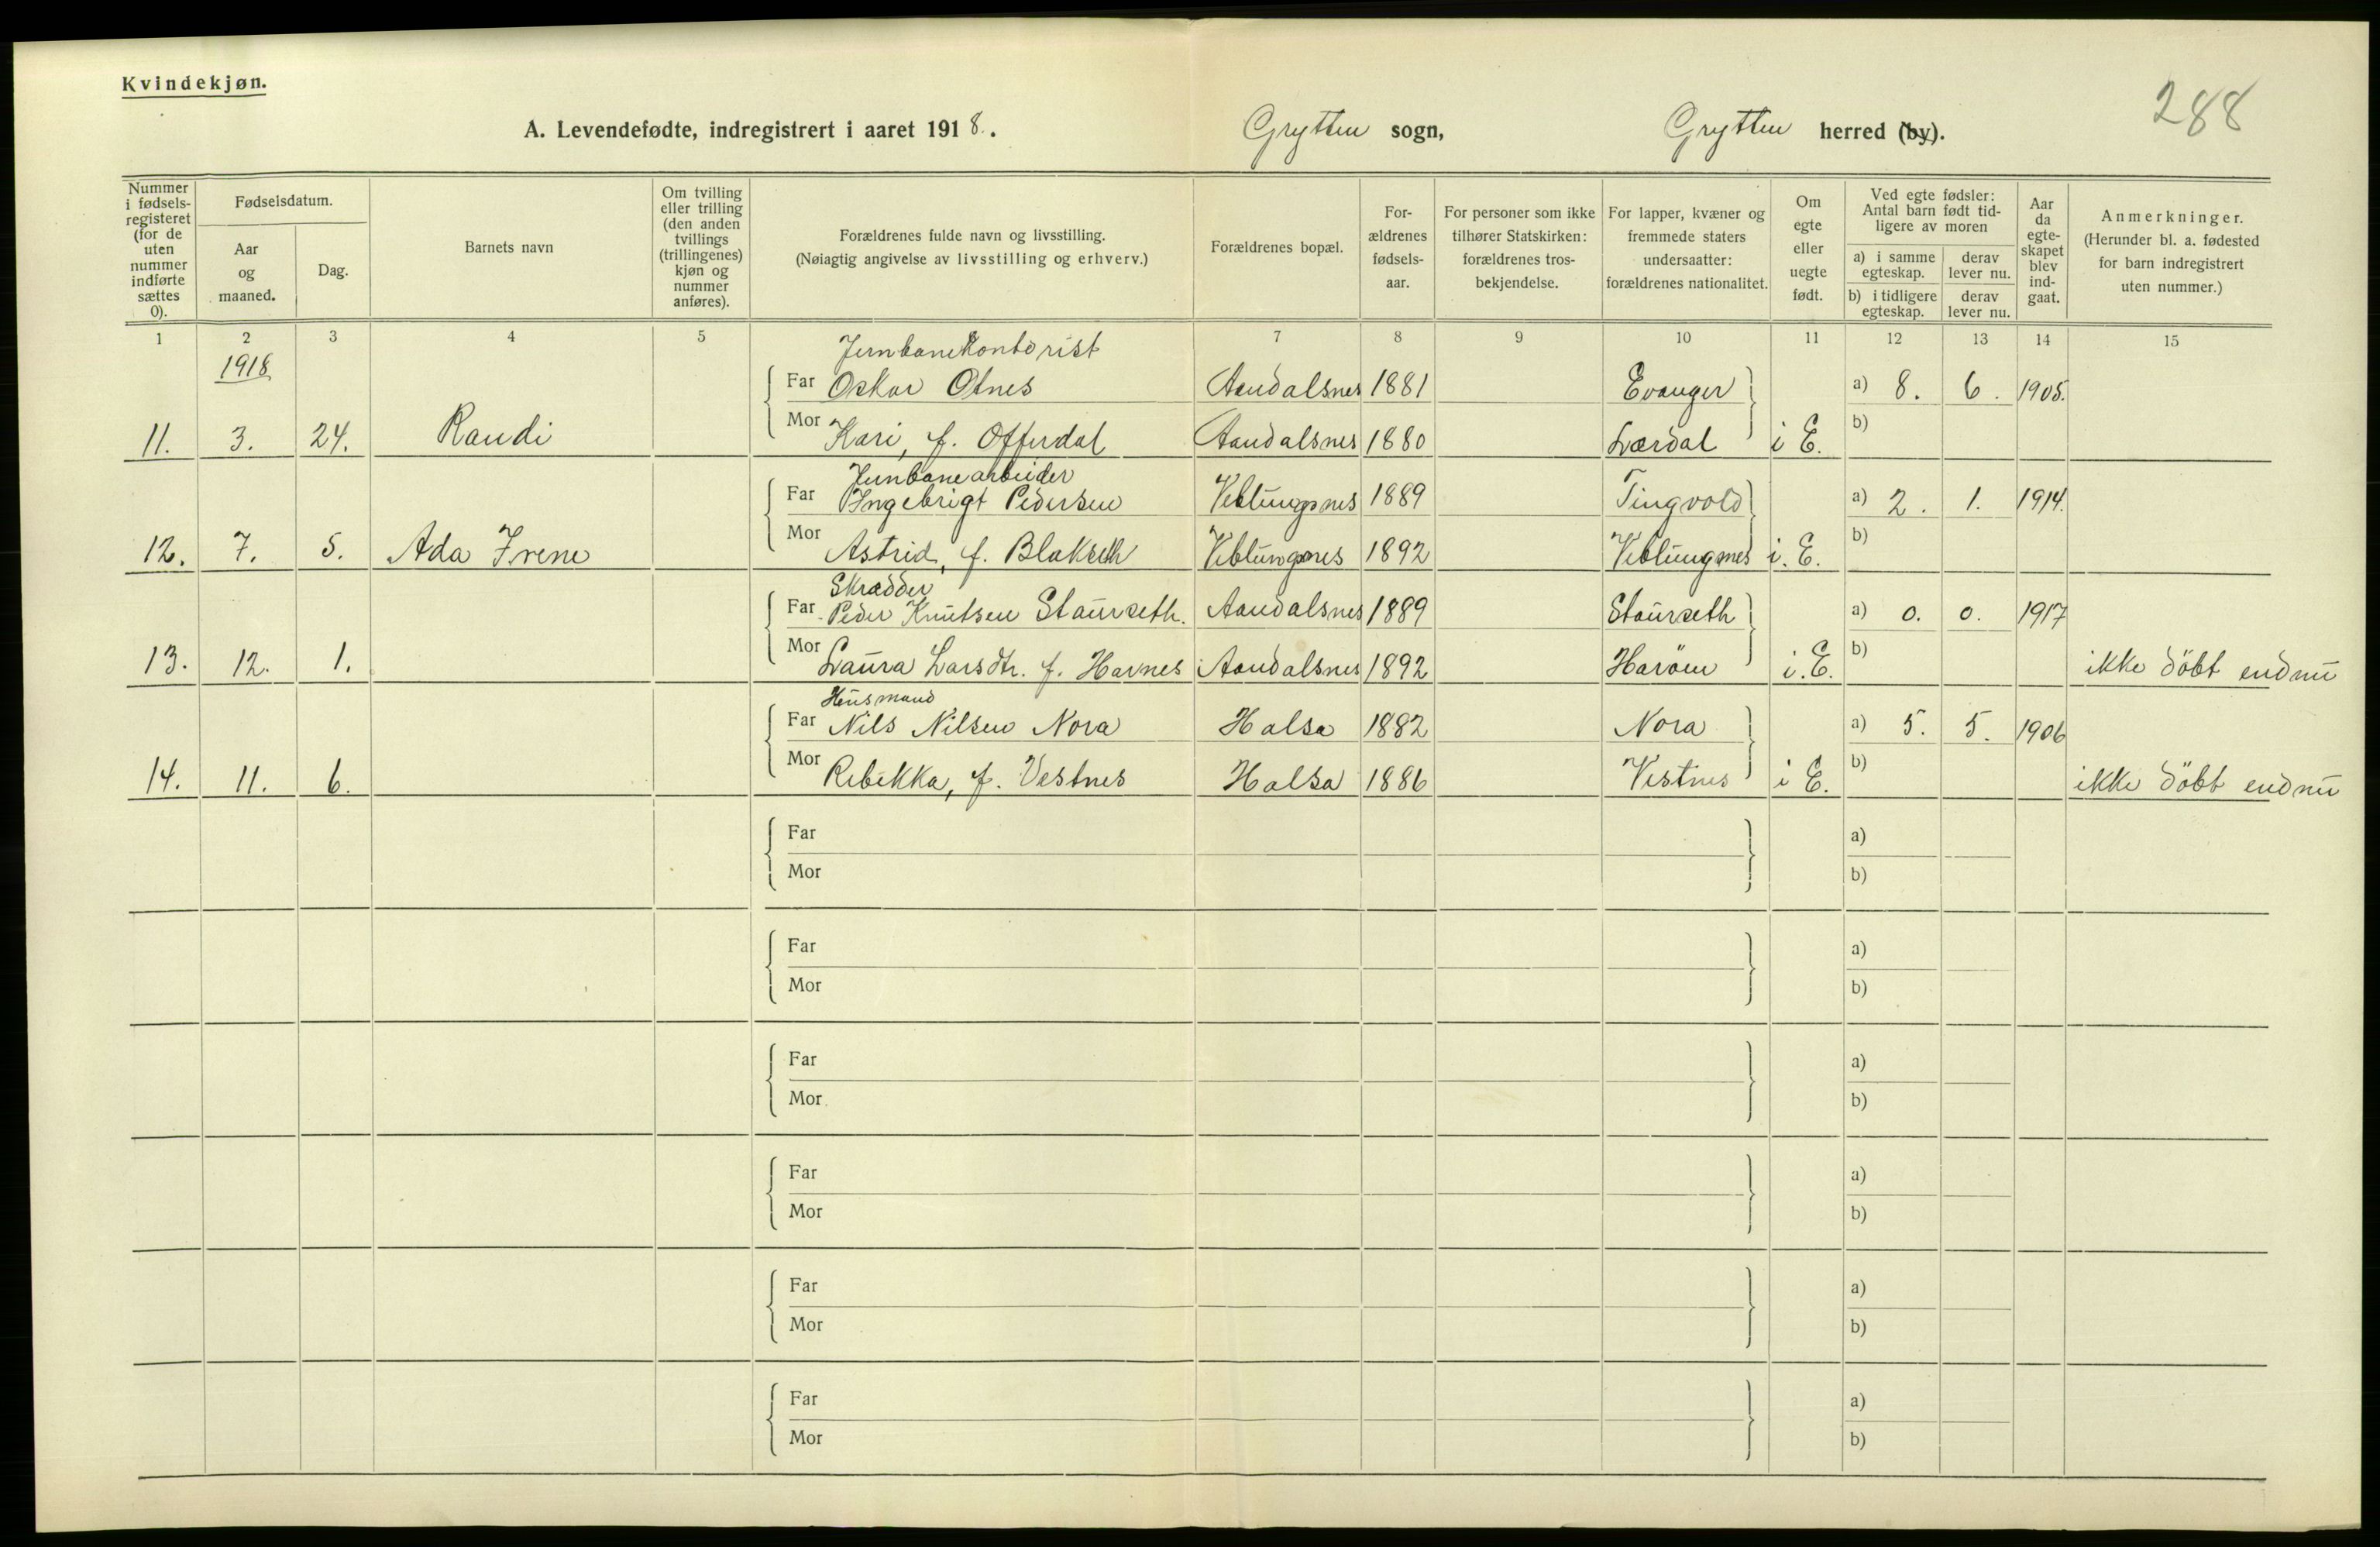 Kvindekjøn.
288
A. Levendefødte, indregistrert i aaret 1918. Grytten sogn, Grytten herred (by).
Nummer i fødselsregisteret (for de uten nummer indførte sættes 0).
Fødselsdatum.
Aar og maaned.
Dag.
Barnets navn
Om tvilling eller trilling (den anden tvillings (trillingenes) kjøn og nummer anføres).
Forældrenes fulde navn og livsstilling.
(Nøiagtig angivelse av livsstilling og erhverv.)
Forældrenes bopæl.
Forældrenes fødselsaar.
For personer som ikke tilhører Statskirken: forældrenes trosbekjendelse.
For lapper, kvæner og fremmede staters undersaatter: forældrenes nationalitet.
Om egte eller uegte født.
Ved egte fødsler: Antal barn født tidligere av moren
a) i samme egteskap.
derav lever nu.
b) i tidligere egteskap.
derav lever nu.
Aar da egteskapet blev indgaat.
Anmerkninger.
(Herunder bl. a. fødested for barn indregistrert uten nummer.)
1 2 3 4 5 7 8 9 10 11 12 13 14 15
1918
Jernbanekontorist
Far Oskar Olnes Aandalsnes 1881 Evanger a) 8. 6. 1905.
11. 3. 24. Randi Mor Kari, f. Offerdal Aandalsnes 1880 Lærdal i E. b)
Jernbanearbeider
Far Ingebrigt Pedersen Veblungsnes 1889 Tingvold a) 2. 1. 1914.
12. 7. 5. Ada Irene Mor Astrid, f. Blakseth Veblungsnes 1892 Veblungsnes i. E. b)
Skrædder
Far Peder Knutsen Staurseth. Aandalsnes 1889 Staurseth a) 0. 0. 1917
13. 12. 1. Mor Laura Larsdtr. f. Havnes Aandalsnes 1892 Haröen i. E. b) ikke döbt endnu
Husmand
Far Nils Nilsen Nora Halsa 1882 Nora a) 5. 5. 1906
14. 11. 6. Mor Rebekka, f. Vestnes Halsa 1886 Vestnes i E. b) ikke döbt endnu
Far a)
Mor b)
Far a)
Mor b)
Far a)
Mor b)
Far a)
Mor b)
Far a)
Mor b)
Far a)
Mor b)